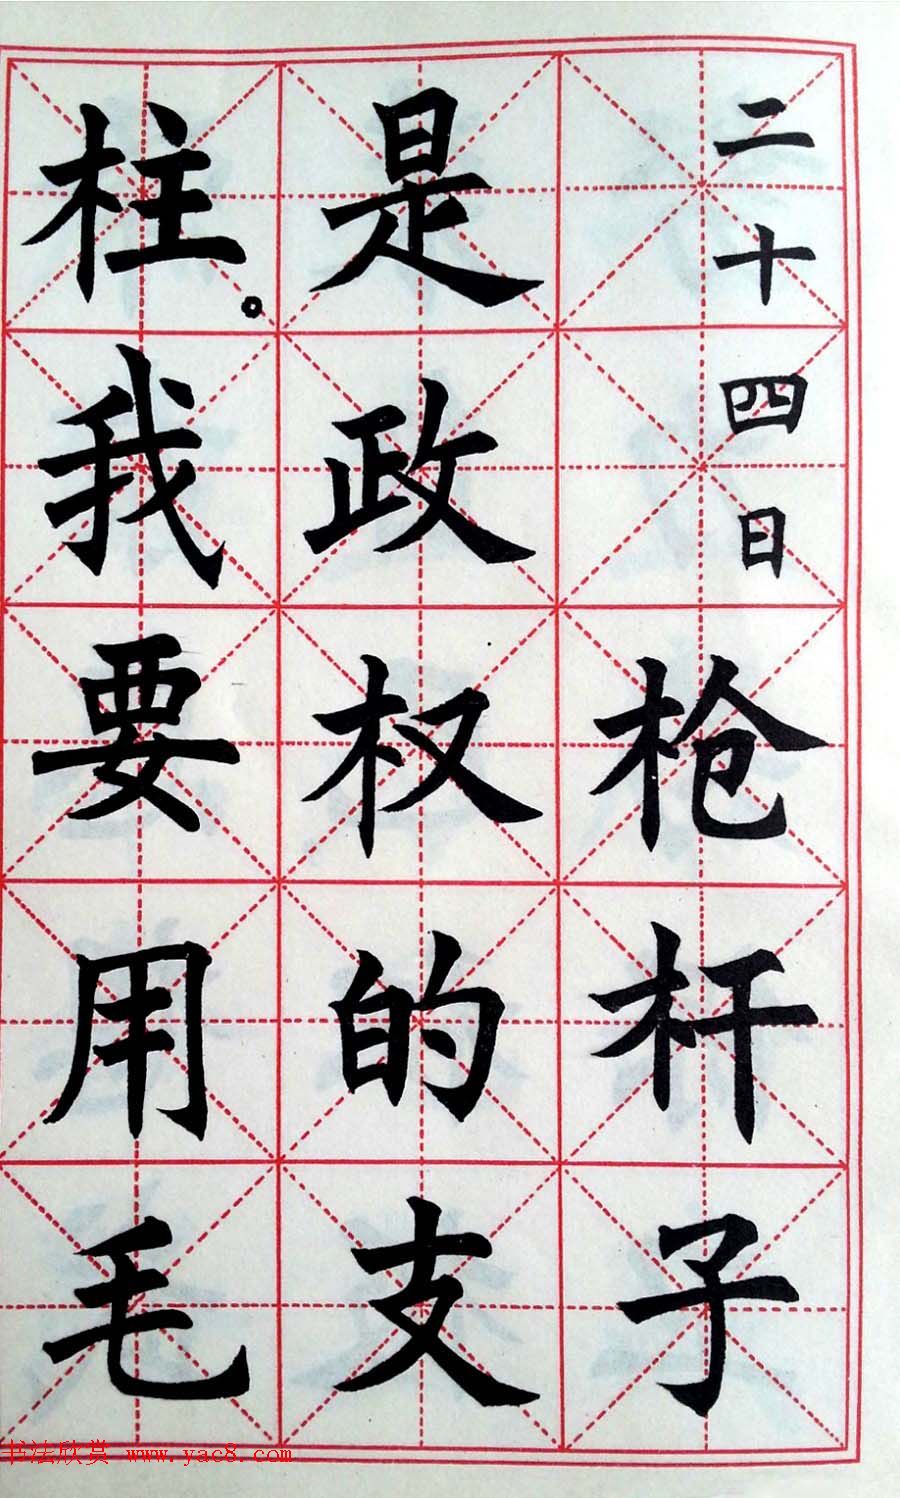 二十四日
枪杆子
是政权的支
柱。我要用毛
书法欣赏 www.yac8.com